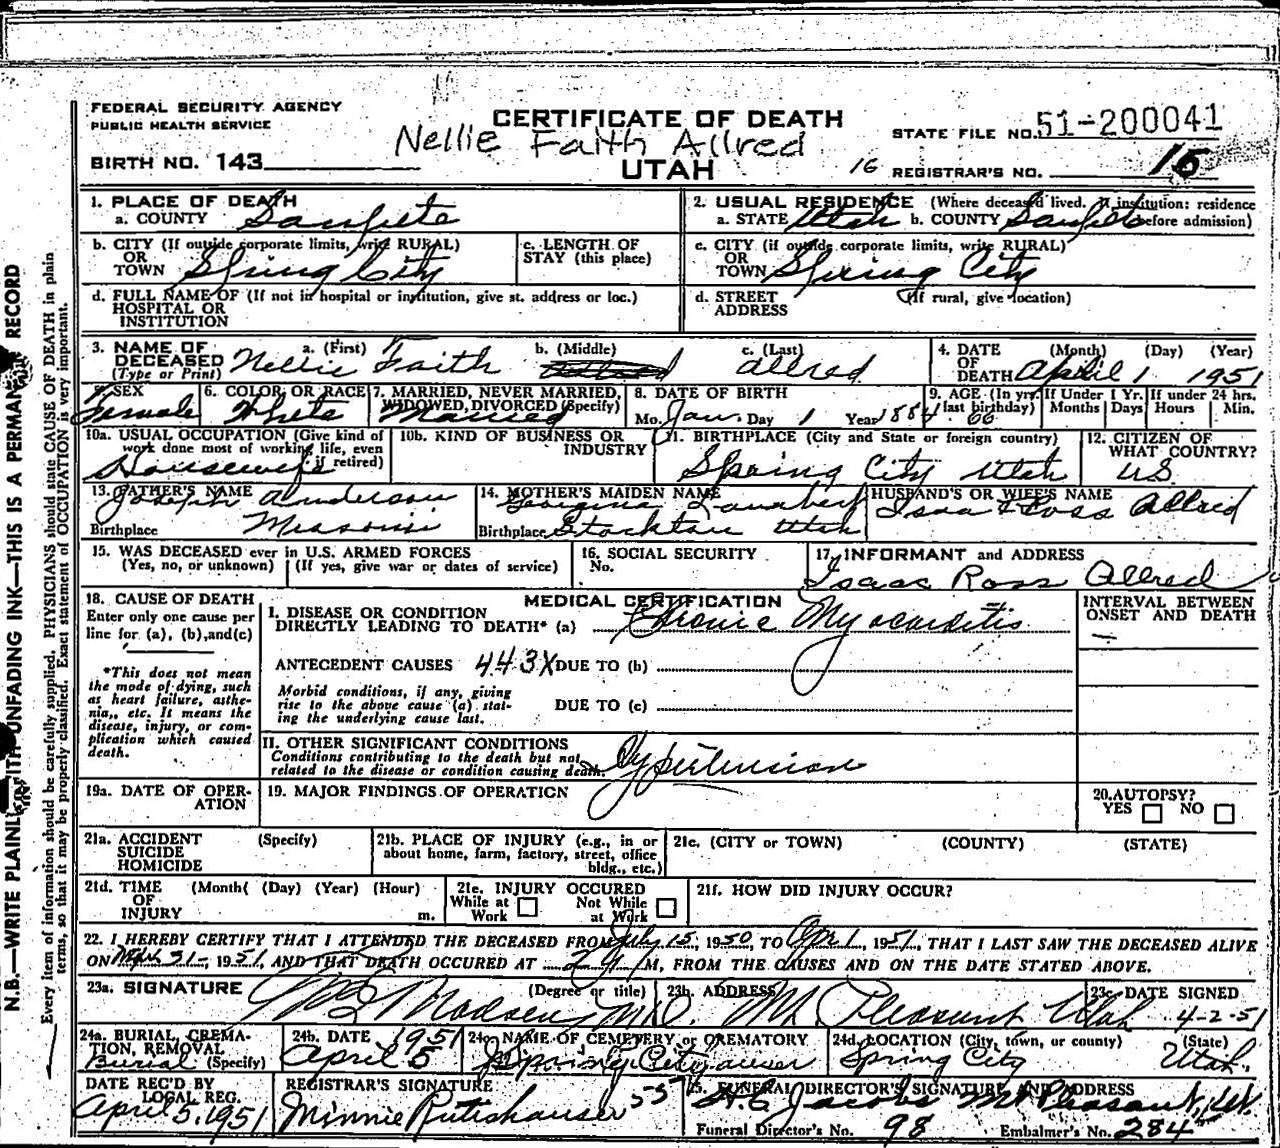 FEDERAL SECURITY AGENCY
PUBLIC HEALTH SERVICE
CERTIFICATE OF DEATH
STATE FILE NO. 51-200041
Nellie Faith Allred
BIRTH NO. 143
UTAH
16 REGISTRAR'S NO. 16
1. PLACE OF DEATH
a. COUNTY Sanpete
2. USUAL RESIDENCE (Where deceased lived. If institution: residence
a. STATE Utah b. COUNTY Sanpete before admission)
b. CITY (If outside corporate limits, write RURAL)
OR
TOWN Spring City
c. LENGTH OF
STAY (this place)
c. CITY (if outside corporate limits, write RURAL)
OR
TOWN Spring City
d. FULL NAME OF (If not in hospital or institution, give st. address or loc.)
HOSPITAL OR
INSTITUTION
d. STREET (If rural, give location)
ADDRESS
3. NAME OF a. (First) b. (Middle) c. (Last)
DECEASED Nellie Faith Allred
(Type or Print)
4. DATE (Month) (Day) (Year)
OF
DEATH April 1 1951
5. SEX
Female
6. COLOR OR RACE
White
7. MARRIED, NEVER MARRIED,
WIDOWED, DIVORCED (Specify)
Married
8. DATE OF BIRTH
Mo. Jan. Day 1 Year 1884
9. AGE (In yrs. If Under 1 Yr. If under 24 hrs.
last birthday) Months Days Hours Min.
66
10a. USUAL OCCUPATION (Give kind of
work done most of working life, even
if retired)
Housewife
10b. KIND OF BUSINESS OR
INDUSTRY
11. BIRTHPLACE (City and State or foreign country)
Spring City Utah
12. CITIZEN OF
WHAT COUNTRY?
U.S.
13. FATHER'S NAME
Joseph Anderson
Birthplace Missouri
14. MOTHER'S MAIDEN NAME
Georgina
Birthplace Stockton Utah
HUSBAND'S OR WIFE'S NAME
Ross Allred
15. WAS DECEASED ever in U.S. ARMED FORCES
(Yes, no, or unknown) (If yes, give war or dates of service)
16. SOCIAL SECURITY
No.
17. INFORMANT and ADDRESS
Isaac Ross Allred
18. CAUSE OF DEATH
Enter only one cause per
line for (a), (b), and (c)
*This does not mean
the mode of dying, such
as heart failure, asthe-
nia,, etc. It means the
disease, injury, or com-
plication which caused
death.
MEDICAL CERTIFICATION
I. DISEASE OR CONDITION
DIRECTLY LEADING TO DEATH* (a) Chronic Myocarditis
ANTECEDENT CAUSES 443X DUE TO (b)
Morbid conditions, if any, giving
rise to the above cause (a) stat-
ing the underlying cause last.
DUE TO (c)
INTERVAL BETWEEN
ONSET AND DEATH
II. OTHER SIGNIFICANT CONDITIONS
Conditions contributing to the death but not
related to the disease or condition causing death. Hypertension
19a. DATE OF OPER-
ATION
19. MAJOR FINDINGS OF OPERATION
20. AUTOPSY?
YES NO
21a. ACCIDENT (Specify)
SUICIDE
HOMICIDE
21b. PLACE OF INJURY (e.g., in or
about home, farm, factory, street, office
bldg., etc.)
21c. (CITY or TOWN) (COUNTY) (STATE)
21d. TIME (Month( (Day) (Year) (Hour)
OF
INJURY m.
21e. INJURY OCCURED
While at Not While
Work at Work
21f. HOW DID INJURY OCCUR?
22. I HEREBY CERTIFY THAT I ATTENDED THE DECEASED FROM July 15, 1950, TO Apr 1, 1951, THAT I LAST SAW THE DECEASED ALIVE
ON Mar 31-, 1951, AND THAT DEATH OCCURED AT M., FROM THE CAUSES AND ON THE DATE STATED ABOVE.
23a. SIGNATURE (Degree or title)
Madsen, M.D.
23b. ADDRESS
Mt. Pleasant Utah
23c. DATE SIGNED
4-2-51
24a. BURIAL, CREMA-
TION, REMOVAL
Burial (Specify)
24b. DATE 1951
April 5
24c. NAME OF CEMETERY or CREMATORY
Spring City
24d. LOCATION (City, town, or county) (State)
Spring City Utah.
DATE REC'D BY
LOCAL REG.
April 5, 1951
REGISTRAR'S SIGNATURE
Minnie Rutishauser
25. FUNERAL DIRECTOR'S SIGNATURE AND ADDRESS
Jacobs Mt Pleasant, Ut.
Funeral Director's No. 98 Embalmer's No. 284
N.B.—WRITE PLAINLY WITH UNFADING INK—THIS IS A PERMANENT RECORD
Every item of information should be carefully supplied. PHYSICIANS should state CAUSE OF DEATH in plain
terms, so that it may be properly classified. Exact statement of OCCUPATION is very important.